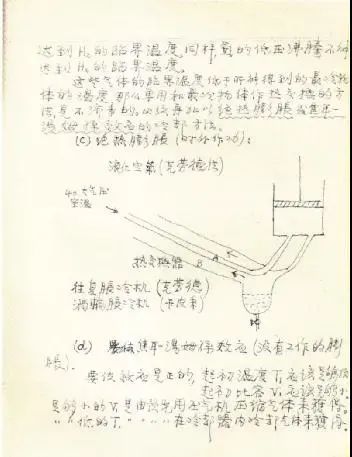 达到 H₂ 的临界温度,同样氦的低压沸腾不能
达到 Hₑ 的临界温度。
这些气体的临界温度低于所能得到的最冷物
体的温度,那么要用和最冷物体作热交换的方
法是不济事的。必须再加以绝热膨胀或焦耳—
汤姆孙效应的冷却方法。
(c) 绝热膨胀(对外作功):
液化空气(克劳德法)
40大气压
室温
热交换器 B A
往复膨胀冷机(克劳德)
涡轮膨胀冷机(卡皮查)
(d) 焦耳—汤姆孙效应(没有工作的膨
胀).
要使效应是正的,起初温度 T₁ 应该足够低
起初比容 V₁ 应该足够小.
足够小的 V₁ 是由预先用压气机压缩气体来获得。
〃 低的 T₁ 〃 在冷却器内冷却气体来获得。